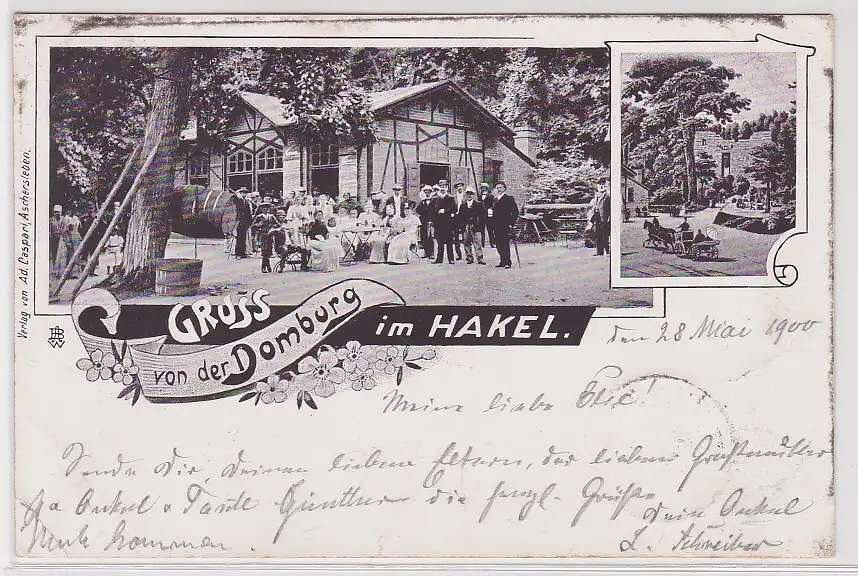 Verlag von Ad. Caspari, Aschersleben.
GRUSS
von der Domburg
im HAKEL.
den 28 Mai 1900
Meine liebe
Sende Dir, Deinen lieben Eltern, der lieben Großmutter
Onkel & Tante Günther die herzl. Grüße
Dein Onkel
kommen.
L. Schreiber